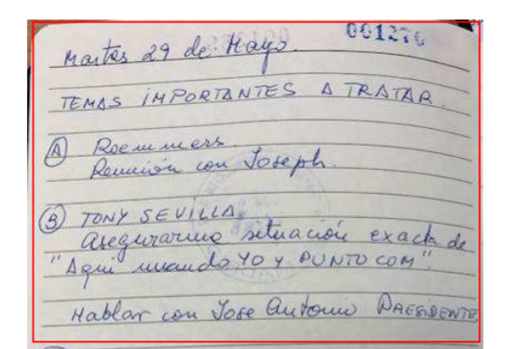 001276
Martes 29 de Mayo.
TEMAS IMPORTANTES A TRATAR.
(A) Roemmers.
Reunión con Joseph.
(B) TONY SEVILLA.
Asegurarme situación exacta de
"Aqui mando YO Y PUNTO COM".
Hablar con Jose Antonio PRESIDENTE